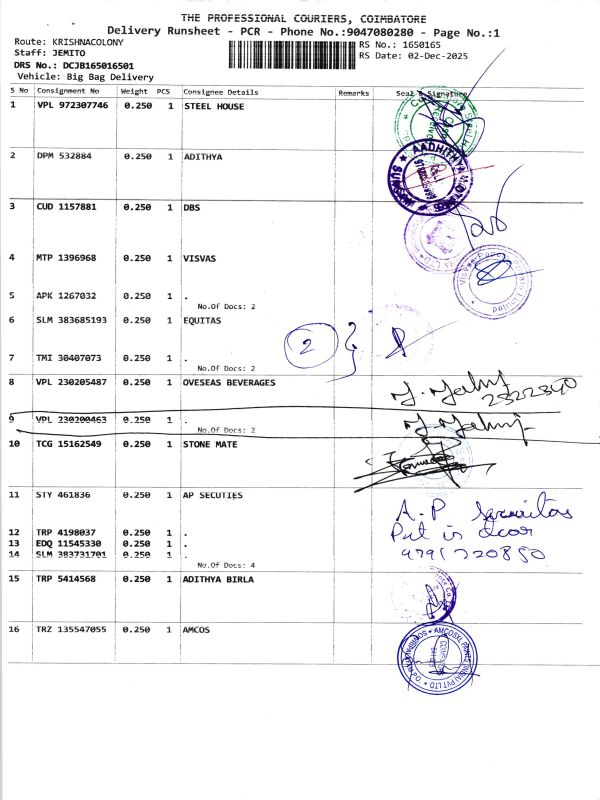 THE PROFESSIONAL COURIERS, COIMBATORE
Delivery Runsheet - PCR - Phone No.:9047080280 - Page No.:1
Route: KRISHNACOLONY
Staff: JEMITO
DRS No.: DCJB165016501
Vehicle: Big Bag Delivery
RS No.: 1650165
RS Date: 02-Dec-2025
S No Consignment No Weight PCS Consignee Details Remarks Seal & Signature
1 VPL 972307746 0.250 1 STEEL HOUSE
2 DPM 532884 0.250 1 ADITHYA
AADHITHYA
3 CUD 1157881 0.250 1 DBS
4 MTP 1396968 0.250 1 VISVAS
5 APK 1267032 0.250 1 .
No.Of Docs: 2
6 SLM 383685193 0.250 1 EQUITAS
2
7 TMI 30407073 0.250 1 .
No.Of Docs: 2
8 VPL 230205487 0.250 1 OVESEAS BEVERAGES
9 VPL 230200463 0.250 1 .
No.Of Docs: 2
10 TCG 15162549 0.250 1 STONE MATE
11 STY 461836 0.250 1 AP SECUTIES
A.P Securitas
Put in door
9791720850
12 TRP 4198037 0.250 1 .
13 EDQ 11545330 0.250 1 .
14 SLM 383731701 0.250 1 .
No.Of Docs: 4
15 TRP 5414568 0.250 1 ADITHYA BIRLA
16 TRZ 135547055 0.250 1 AMCOS